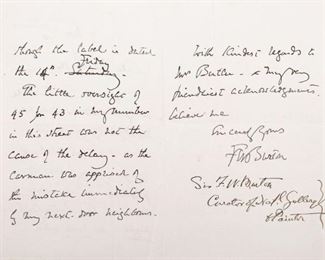 though the label is dated
Friday
the 14th. Saturday.
The little oversight of
45 for 43 in my number
in this street was not the
cause of the delay - as the
carman was apprised of
the mistake immediately
by my next-door neighbours.
With kindest regards to
Mrs Butler - & my very
friendliest acknowledgments.
believe me
Sincerely Yours
FWBurton
Sir F.W. Burton
Curator of Nat. Gallery
& Painter